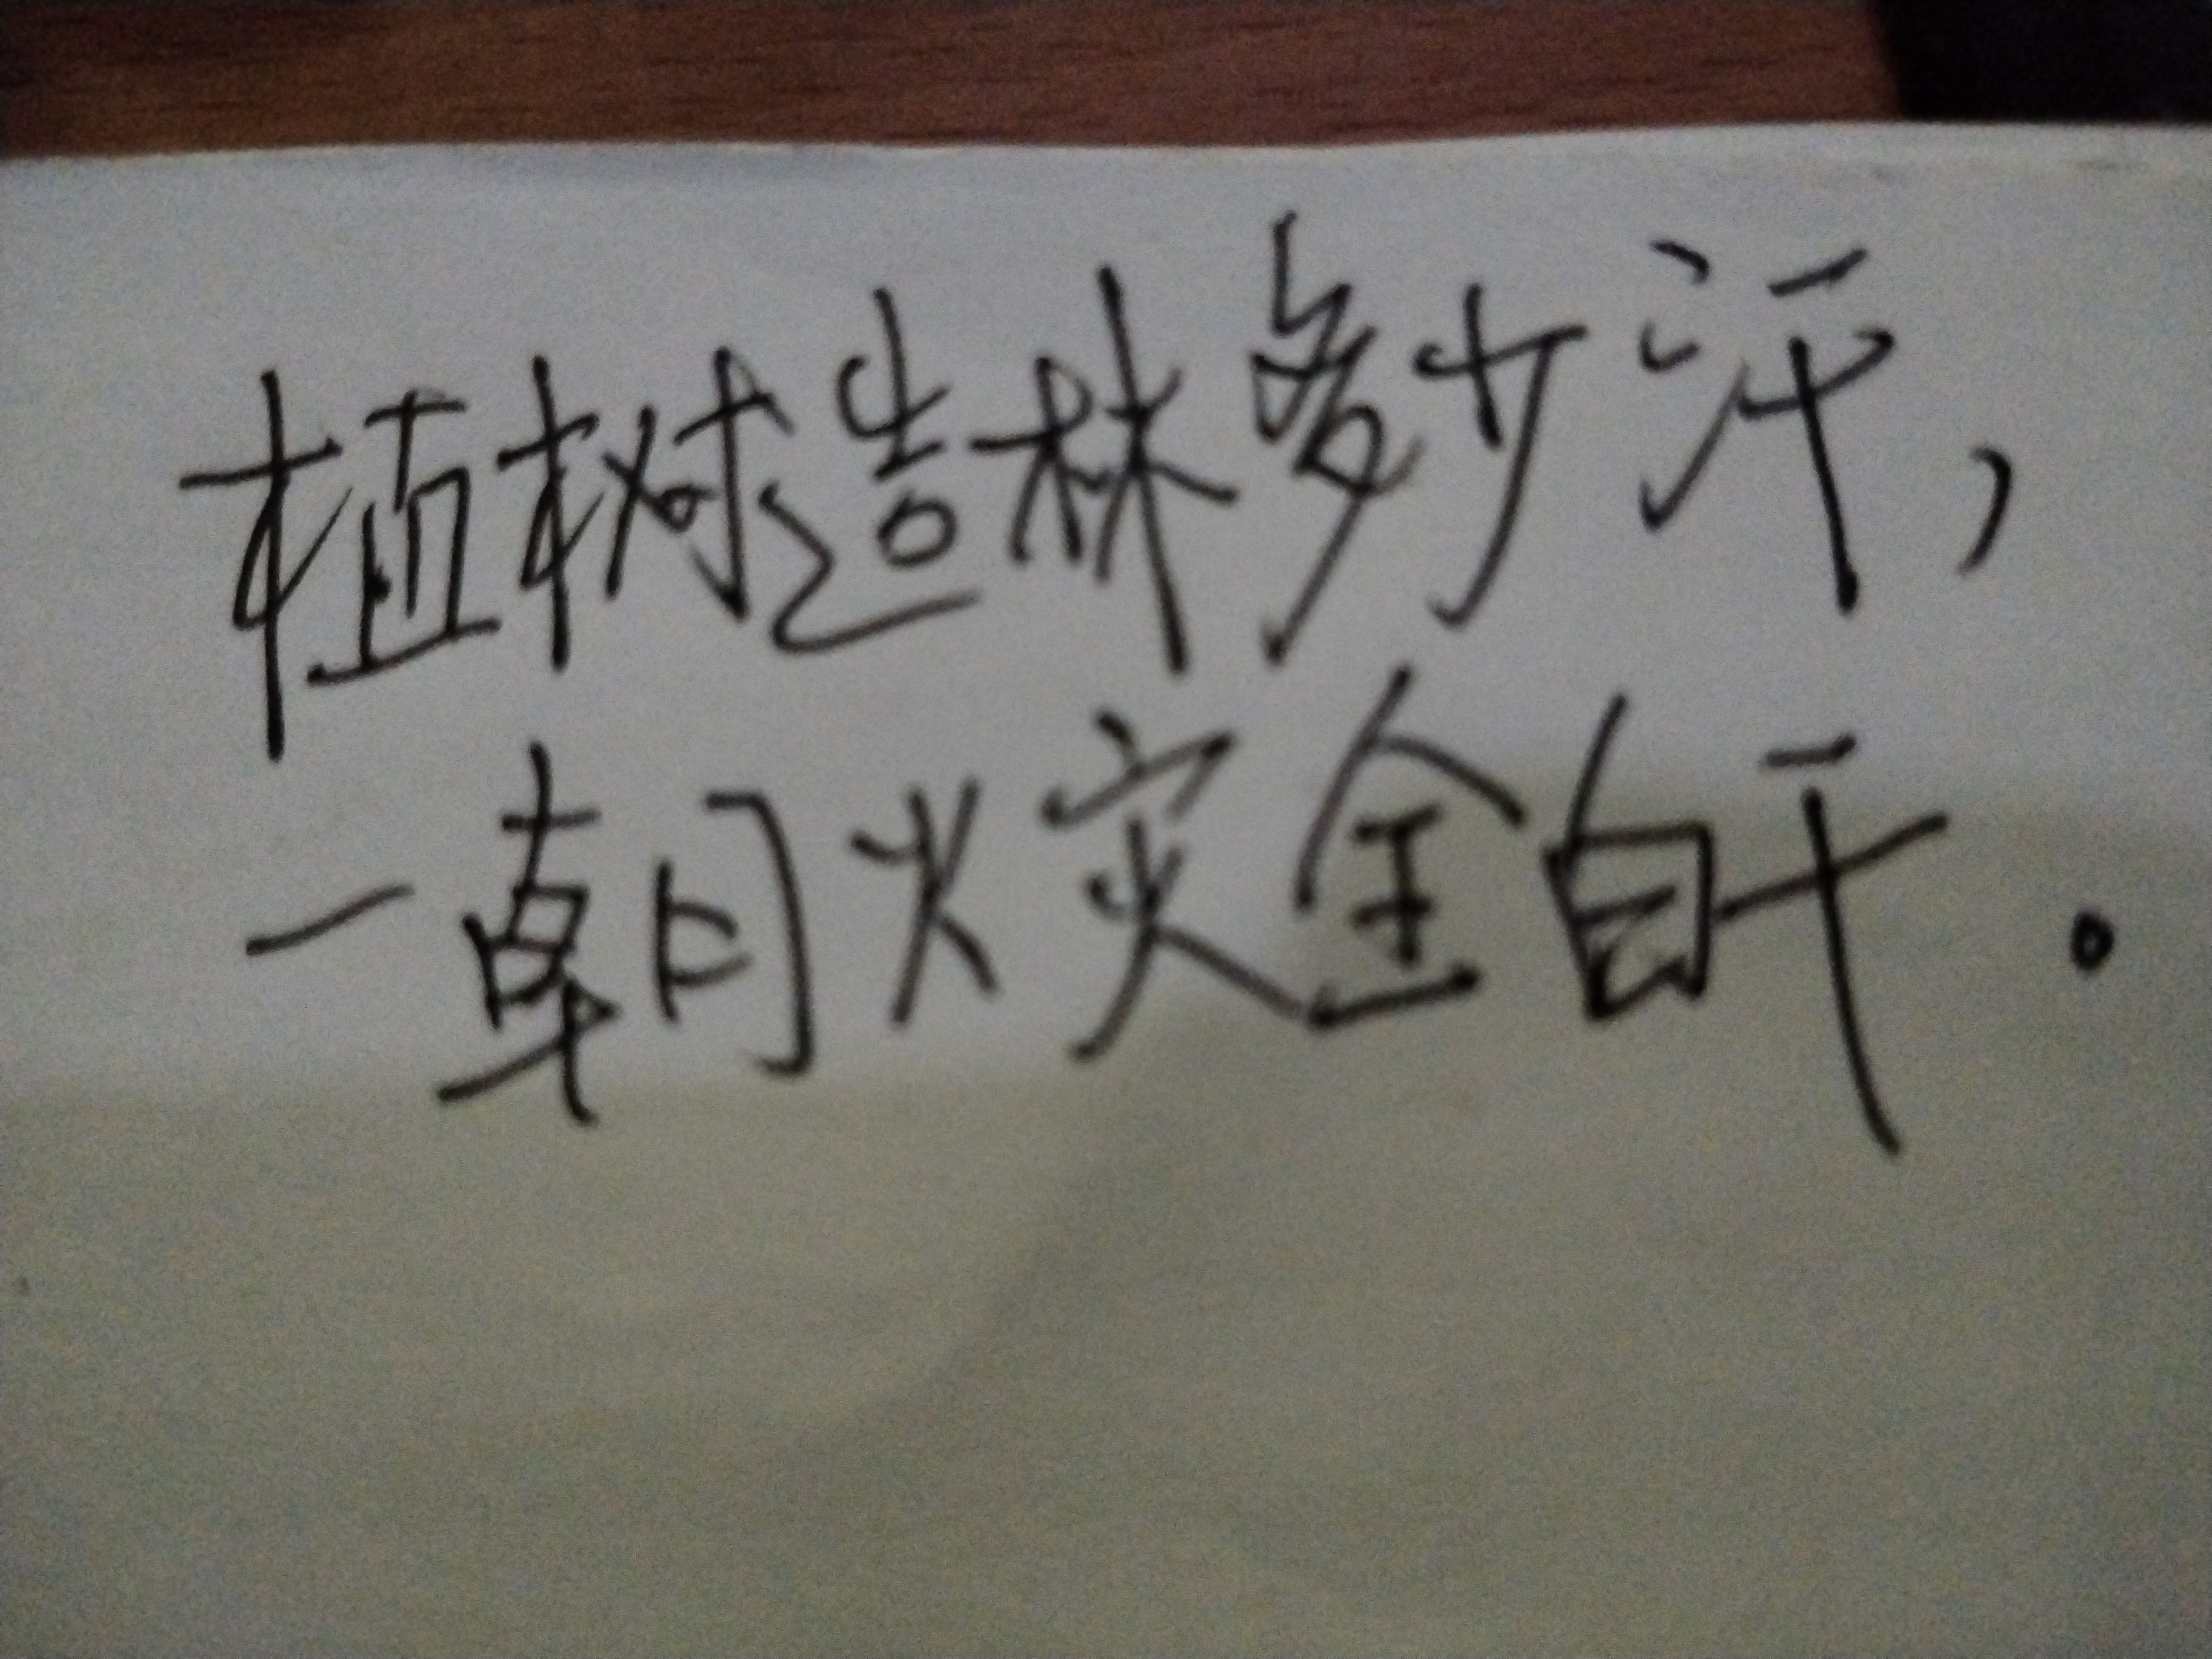 植树造林多少汗，
一朝火灾全白干。